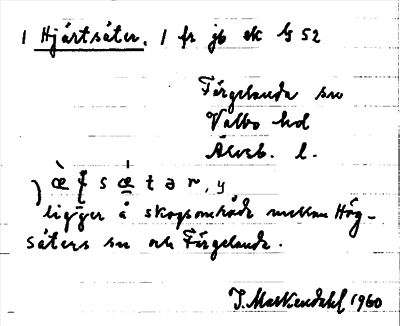 1 Hjärtsäter. 1 fr jb ek b 52
Färgelanda sn
Valbo hd
Älvsb. l.
sætər, y
ligger å skogsområde mellan Hög-
säters sn och Färgelanda.
1960